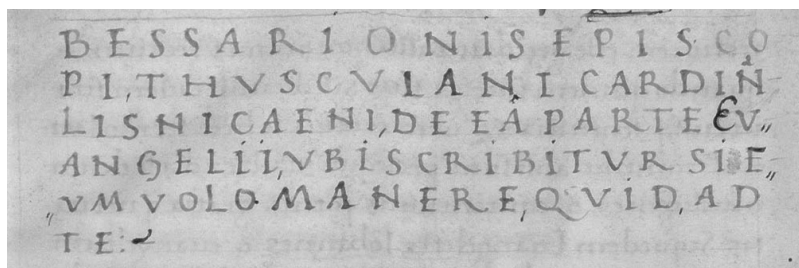 BESSARIONIS EPISCO
PI, THVSCVLANI CARDINA
LIS NICAENI, DE EA PARTE EV„
ANGELII, VBI SCRIBITVR SI E„
„VM VOLO MANERE, QVID, AD
TE: